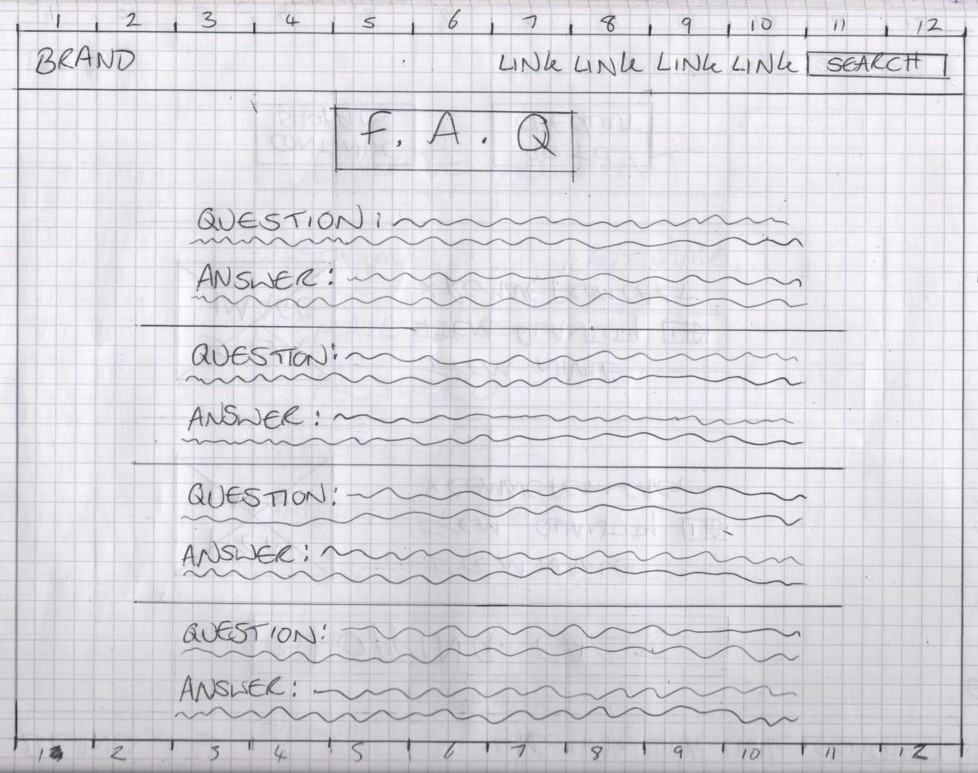 1 2 3 4 5 6 7 8 9 10 11 12
BRAND LINK LINK LINK LINK SEARCH
F. A. Q
QUESTION:
ANSWER:
QUESTION:
ANSWER:
QUESTION:
ANSWER:
QUESTION:
ANSWER:
1 2 3 4 5 6 7 8 9 10 11 12